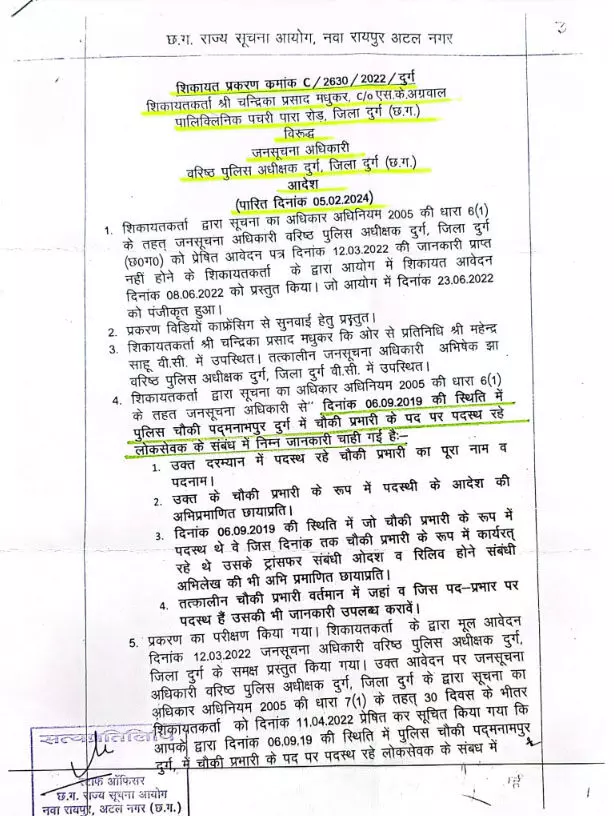 छ.ग. राज्य सूचना आयोग, नवा रायपुर अटल नगर
3
शिकायत प्रकरण कमांक C/2630/2022/दुर्ग
शिकायतकर्ता श्री चन्द्रिका प्रसाद मधुकर, C/o एस.के.अग्रवाल
पालिक्लिनिक पचरी पारा रोड़, जिला दुर्ग (छ.ग.)
विरूद्ध
जनसूचना अधिकारी
वरिष्ठ पुलिस अधीक्षक दुर्ग, जिला दुर्ग (छ.ग.)
आदेश
(पारित दिनांक 05.02.2024)
1. शिकायतकर्ता द्वारा सूचना का अधिकार अधिनियम 2005 की धारा 6(1)
के तहत् जनसूचना अधिकारी वरिष्ठ पुलिस अधीक्षक दुर्ग, जिला दुर्ग
(छ0ग0) को प्रेषित आवेदन पत्र दिनांक 12.03.2022 की जानकारी प्राप्त
नहीं होने के शिकायतकर्ता के द्वारा आयोग में शिकायत आवेदन
दिनांक 08.06.2022 को प्रस्तुत किया। जो आयोग में दिनांक 23.06.2022
को पंजीकृत हुआ।
2. प्रकरण विडियों काफ्रेंसिग से सुनवाई हेतु प्रस्तुत।
3. शिकायतकर्ता श्री चन्द्रिका प्रसाद मधुकर कि ओर से प्रतिनिधि श्री महेन्द्र
साहू वी.सी. में उपस्थित। तत्कालीन जनसूचना अधिकारी अभिषेक झा
वरिष्ठ पुलिस अधीक्षक दुर्ग, जिला दुर्ग वी.सी. में उपस्थित।
4. शिकायतकर्ता द्वारा सूचना का अधिकार अधिनियम 2005 की धारा 6(1)
के तहत जनसूचना अधिकारी से" दिनांक 06.09.2019 की स्थिति में
पुलिस चौकी पद्मनाभपुर दुर्ग में चौकी प्रभारी के पद पर पदस्थ रहे
लोकसेवक के संबंध में निम्न जानकारी चाही गई है:-
1. उक्त दरम्यान में पदस्थ रहे चौकी प्रभारी का पूरा नाम व
पदनाम।
2. उक्त के चौकी प्रभारी के रूप में पदस्थी के आदेश की
अभिप्रमाणित छायाप्रति।
3. दिनांक 06.09.2019 की स्थिति में जो चौकी प्रभारी के रूप में
पदस्थ थे वे जिस दिनांक तक चौकी प्रभारी के रूप में कार्यरत्
रहे थे उसके ट्रांसफर संबंधी ओदश व रिलिव होने संबंधी
अभिलेख की भी अभि प्रमाणित छायाप्रति।
4. तत्कालीन चौकी प्रभारी वर्तमान में जहां व जिस पद-प्रभार पर
पदस्थ हैं उसकी भी जानकारी उपलब्ध करावें।
5. प्रकरण का परीक्षण किया गया। शिकायतकर्ता के द्वारा मूल आवेदन
दिनांक 12.03.2022 जनसूचना अधिकारी वरिष्ठ पुलिस अधीक्षक दुर्ग,
जिला दुर्ग के समक्ष प्रस्तुत किया गया। उक्त आवेदन पर जनसूचना
अधिकारी वरिष्ठ पुलिस अधीक्षक दुर्ग, जिला दुर्ग के द्वारा सूचना का
अधिकार अधिनियम 2005 की धारा 7(1) के तहत् 30 दिवस के भीतर
शिकायतकर्ता को दिनांक 11.04.2022 प्रेषित कर सूचित किया गया कि
आपके द्वारा दिनांक 06.09.19 की स्थिति में पुलिस चौकी पद्मनाभपुर
दुर्ग, में चौकी प्रभारी के पद पर पदस्थ रहे लोकसेवक के संबध में
सत्यप्रतिलिपि
स्टाफ ऑफिसर
छ.ग. राज्य सूचना आयोग
नवा रायपुर, अटल नगर (छ.ग.)